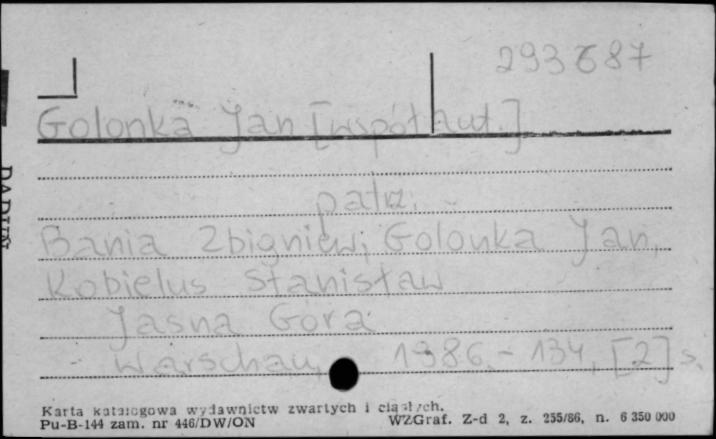 293687
Golonka Jan [współaut.]
patrz.
Bania Zbigniew; Golonka Jan,
Kobielus Stanisław
Jasna Góra
Warschau, 1986. - 134, [2] s.
Karta katalogowa wydawnictw zwartych i ciągłych.
Pu-B-144 zam. nr 446/DW/ON WZGraf. Z-d 2, z. 255/86, n. 6 350 000